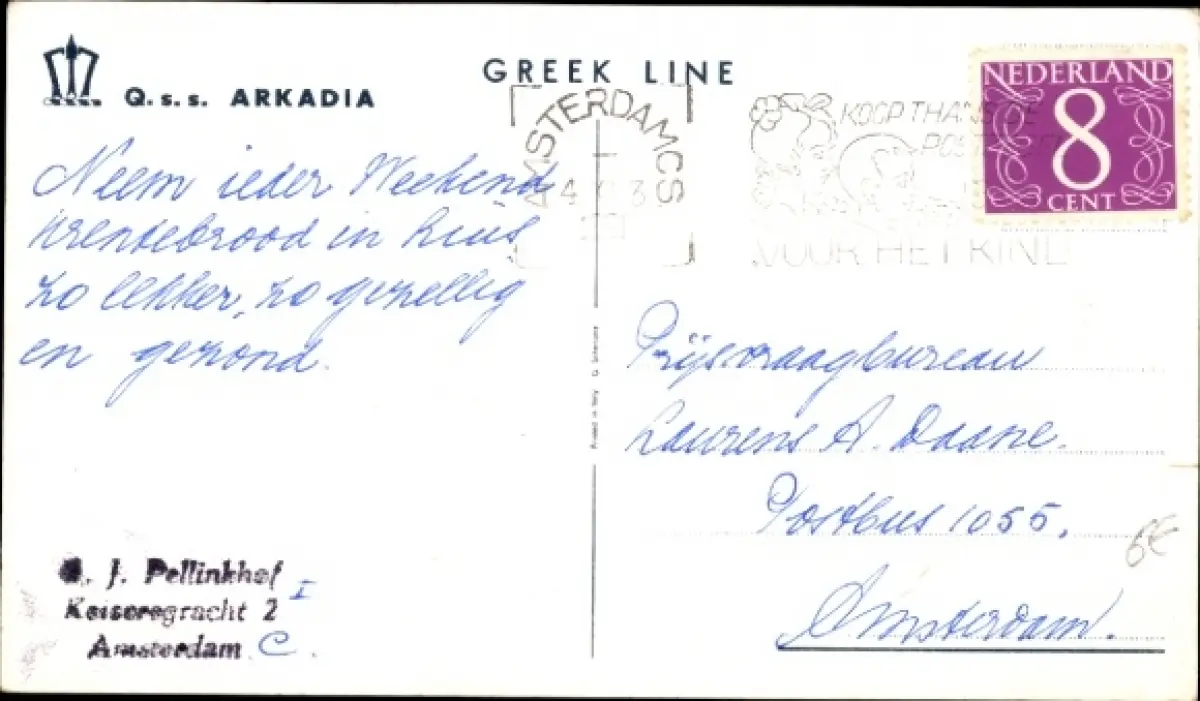 Q.S.S. ARKADIA
GREEK LINE
Neem ieder Weekend
krentebrood in huis
zo lekker, zo gezellig
en gezond.
AMSTERDAM CS
KOOP THANS DE
VOOR HET KIND
NEDERLAND
8
CENT
Printed in Italy
Prijsvraagbureau
Laurens A. Daane.
Postbus 1055.
Amsterdam.
6€
J. Pellinkhof I
Keizersgracht 2
Amsterdam C.